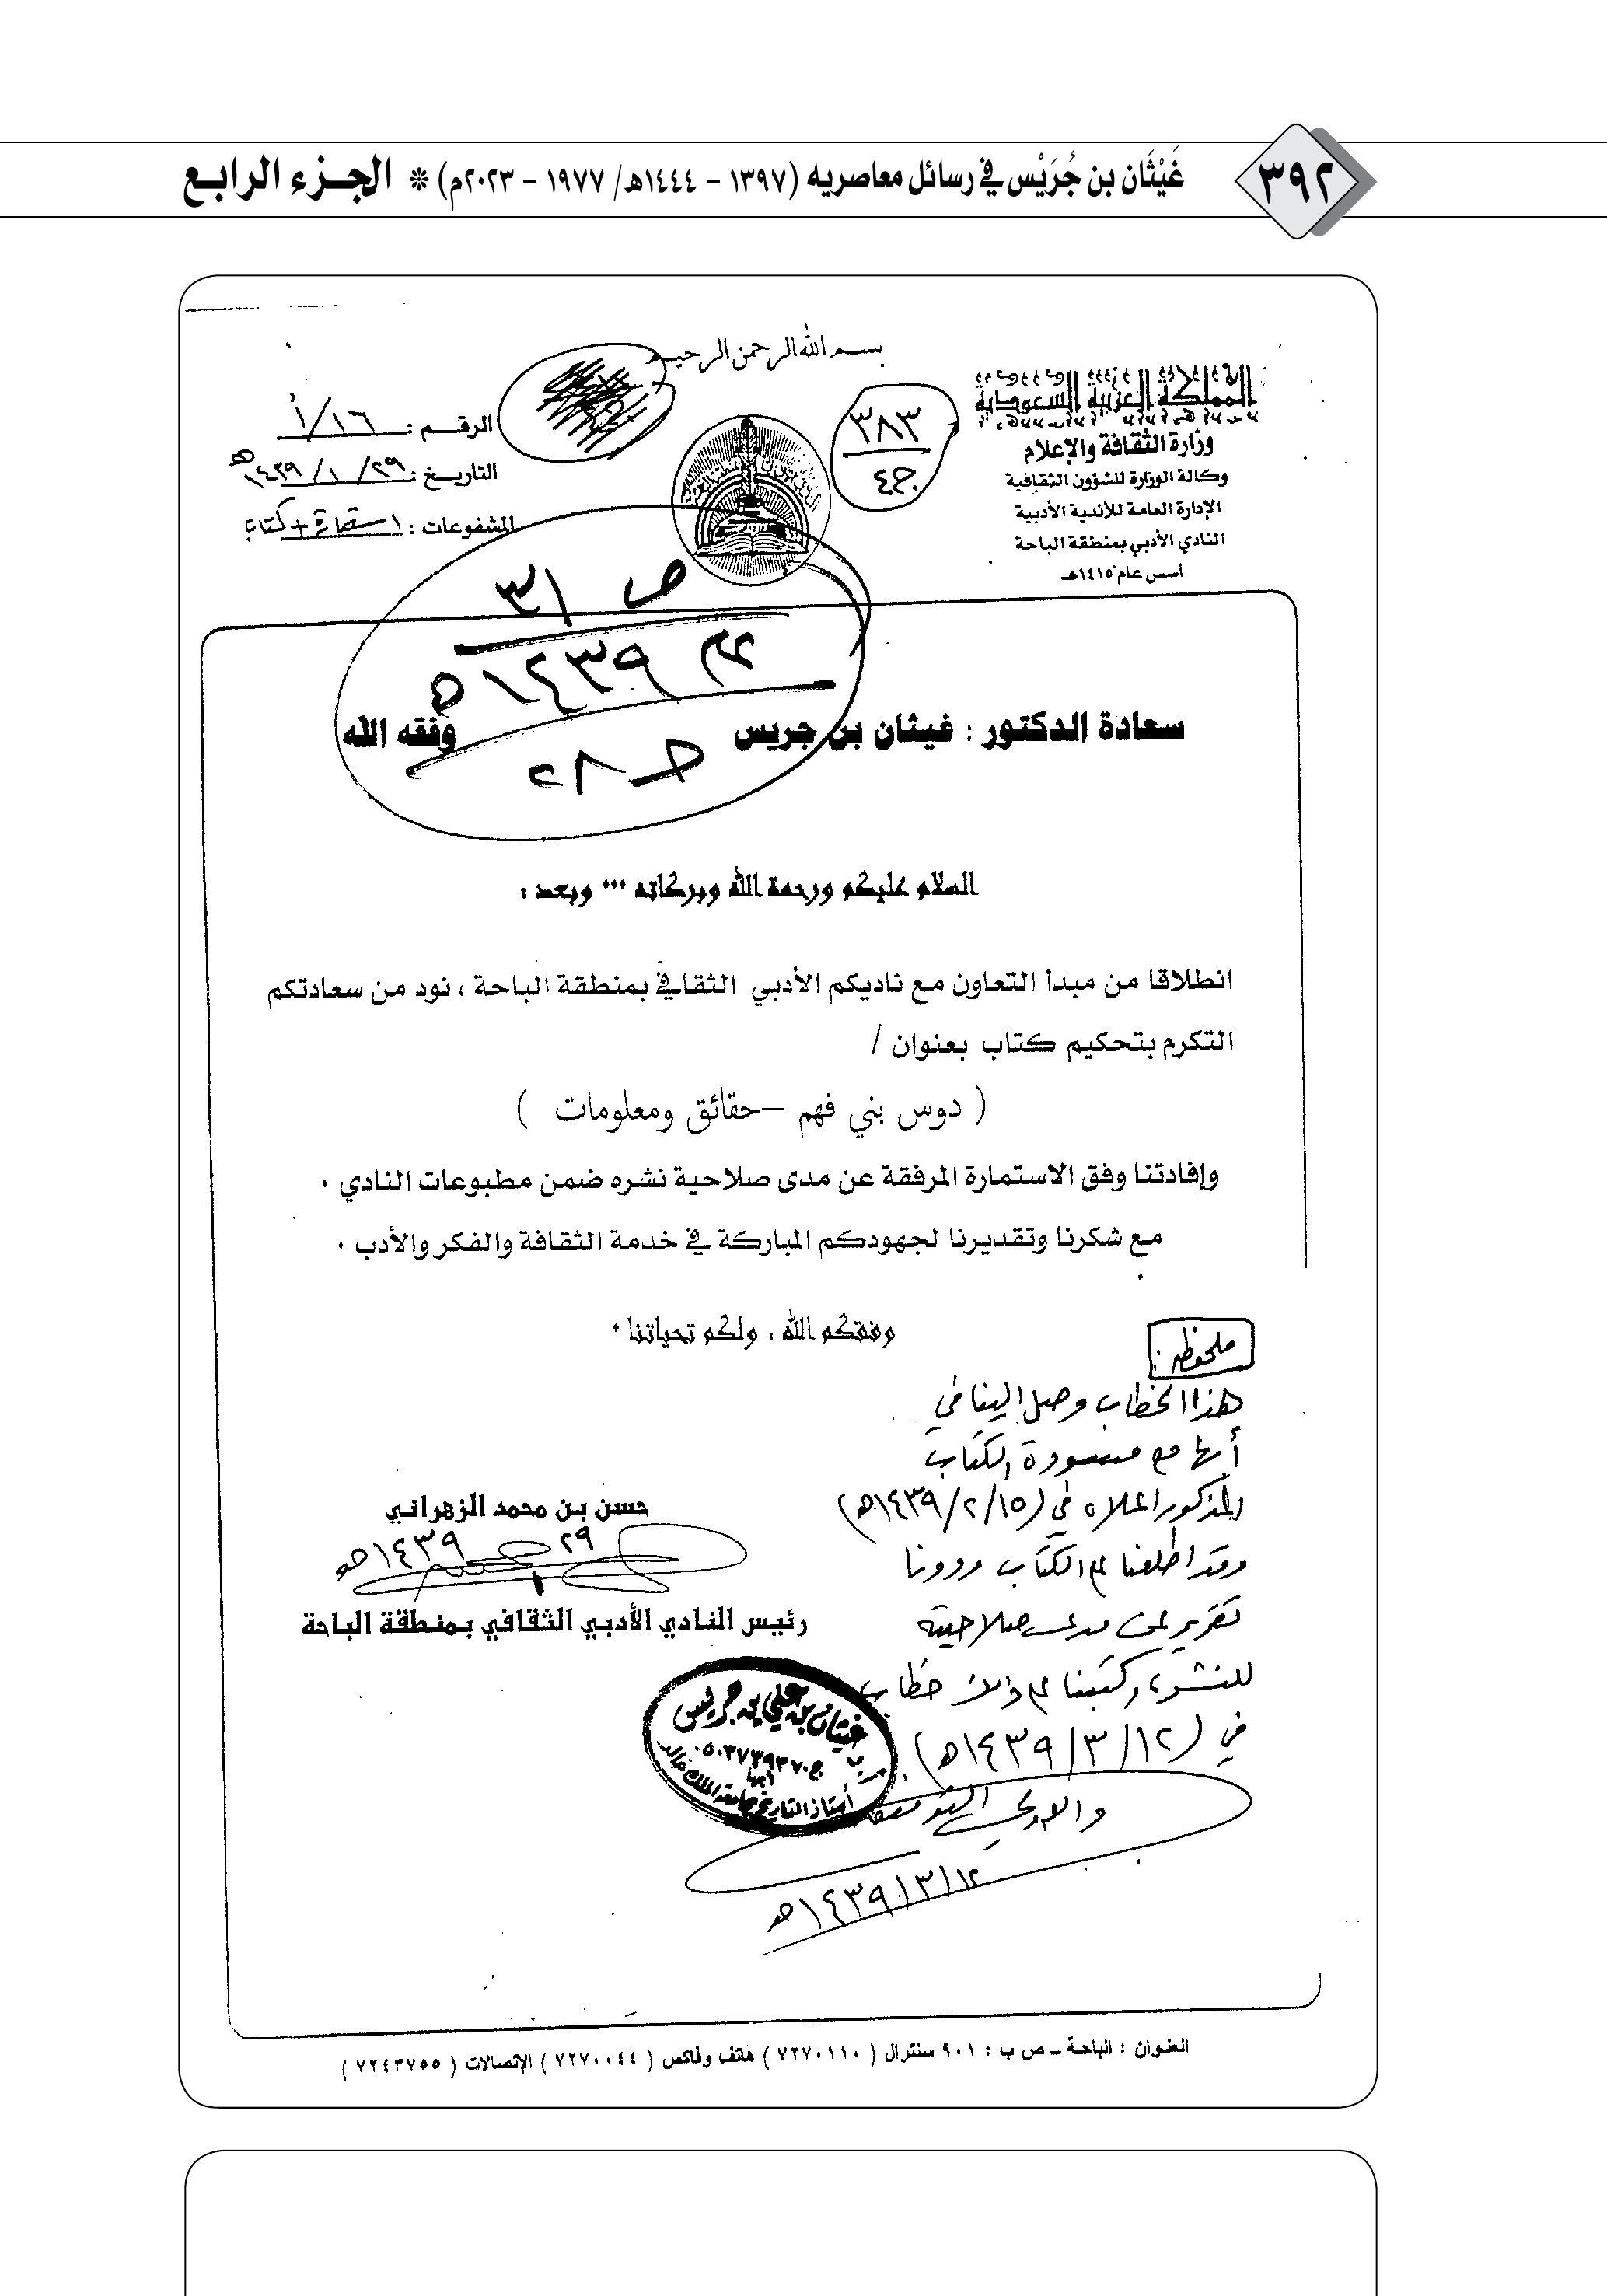 ٣٩٢
غَيْثَان بن جُرَيْس في رسائل معاصريه (١٣٩٧ - ١٤٤٤هـ/ ١٩٧٧ - ٢٠٢٣م) * الجـزء الرابـع
بسـم الله الرحمن الرحيـم
المملكة العربية السعودية
وزارة الثقافة والإعلام
وكالة الوزارة للشؤون الثقافية
الإدارة العامة للأندية الأدبية
النادي الأدبي بمنطقة الباحة
أسس عام ١٤١٥هـ
٣٨٣
ج٤
الرقـــم : ١/١٦
التاريـخ : ١٤٣٩/١/٢٩هـ
المشفوعات : استمارة + كتاب
ص ٣١
عم ١٤٣٩هـ
حـ ٢٨
سعادة الدكتور : غيثان بن جريس وفقه الله
السلام عليكم ورحمة الله وبركاته ... وبعد :
انطلاقا من مبدأ التعاون مع ناديكم الأدبي الثقافي بمنطقة الباحة ، نود من سعادتكم
التكرم بتحكيم كتاب بعنوان /
( دوس بني فهم –حقائق ومعلومات )
وإفادتنا وفق الاستمارة المرفقة عن مدى صلاحية نشره ضمن مطبوعات النادي .
مع شكرنا وتقديرنا لجهودكم المباركة في خدمة الثقافة والفكر والأدب .
وفقكم الله ، ولكم تحياتنا .
حسن بن محمد الزهراني
٢٩ ١٤٣٩هـ
رئيس النادي الأدبي الثقافي بمنطقة الباحة
ملحوظة :
هذا الخطاب وصل الينا في
أبها مع مسودة الكتاب
المذكور اعلاه في (١٤٣٩/٢/١٥هـ)
وقد اطلعنا على الكتاب ودونا
تقرير عن مدى صلاحيته
للنشر، وكتبنا على ذلك خطاب
في (١٤٣٩/٣/١٢هـ)
والله ولي التوفيق
١٤٣٩/٣/١٢هـ
غيثان بن علي بن جريس
ج ٠٥٠٣٧٣٩٣٧٠
أبها
أستاذ التاريخ بجامعة الملك خالد
العنوان : الباحة ــ ص ب : ٩٠١ سنترال ( ٧٢٧٠١١٠ ) هاتف وفاكس ( ٧٢٧٠٠٤٤ ) الإتصالات ( ٧٢٤٣٧٥٥ )